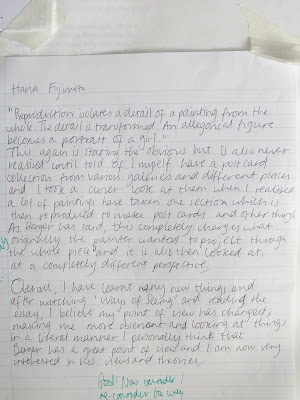 Hana Fujimoto
"Reproduction isolates a detail of a painting from the
whole. The detail is transformed. An allegorical figure
becomes a portrait of a girl."
This again is stating the obvious but I also never
realised until told of. I myself have a post card
collection from various galleries and different places
and I took a closer look at them when I realised
a lot of paintings have taken one section which is
then reproduced to make post cards and other things.
As Berger has said, this completely changes what
originally the painter wanted to project through
the whole piece and it is also then looked at,
at a completely different perspective.
Overall, I have learnt many new things and
after watching 'Ways of Seeing' and reading the
essay, I believe my point of view has changed,
making me more observant and looking at things
in a literal manner. I personally think that
Berger has a great point of view and I am now very
interested in his views and theories.
Good! Now consider/
re-consider the way